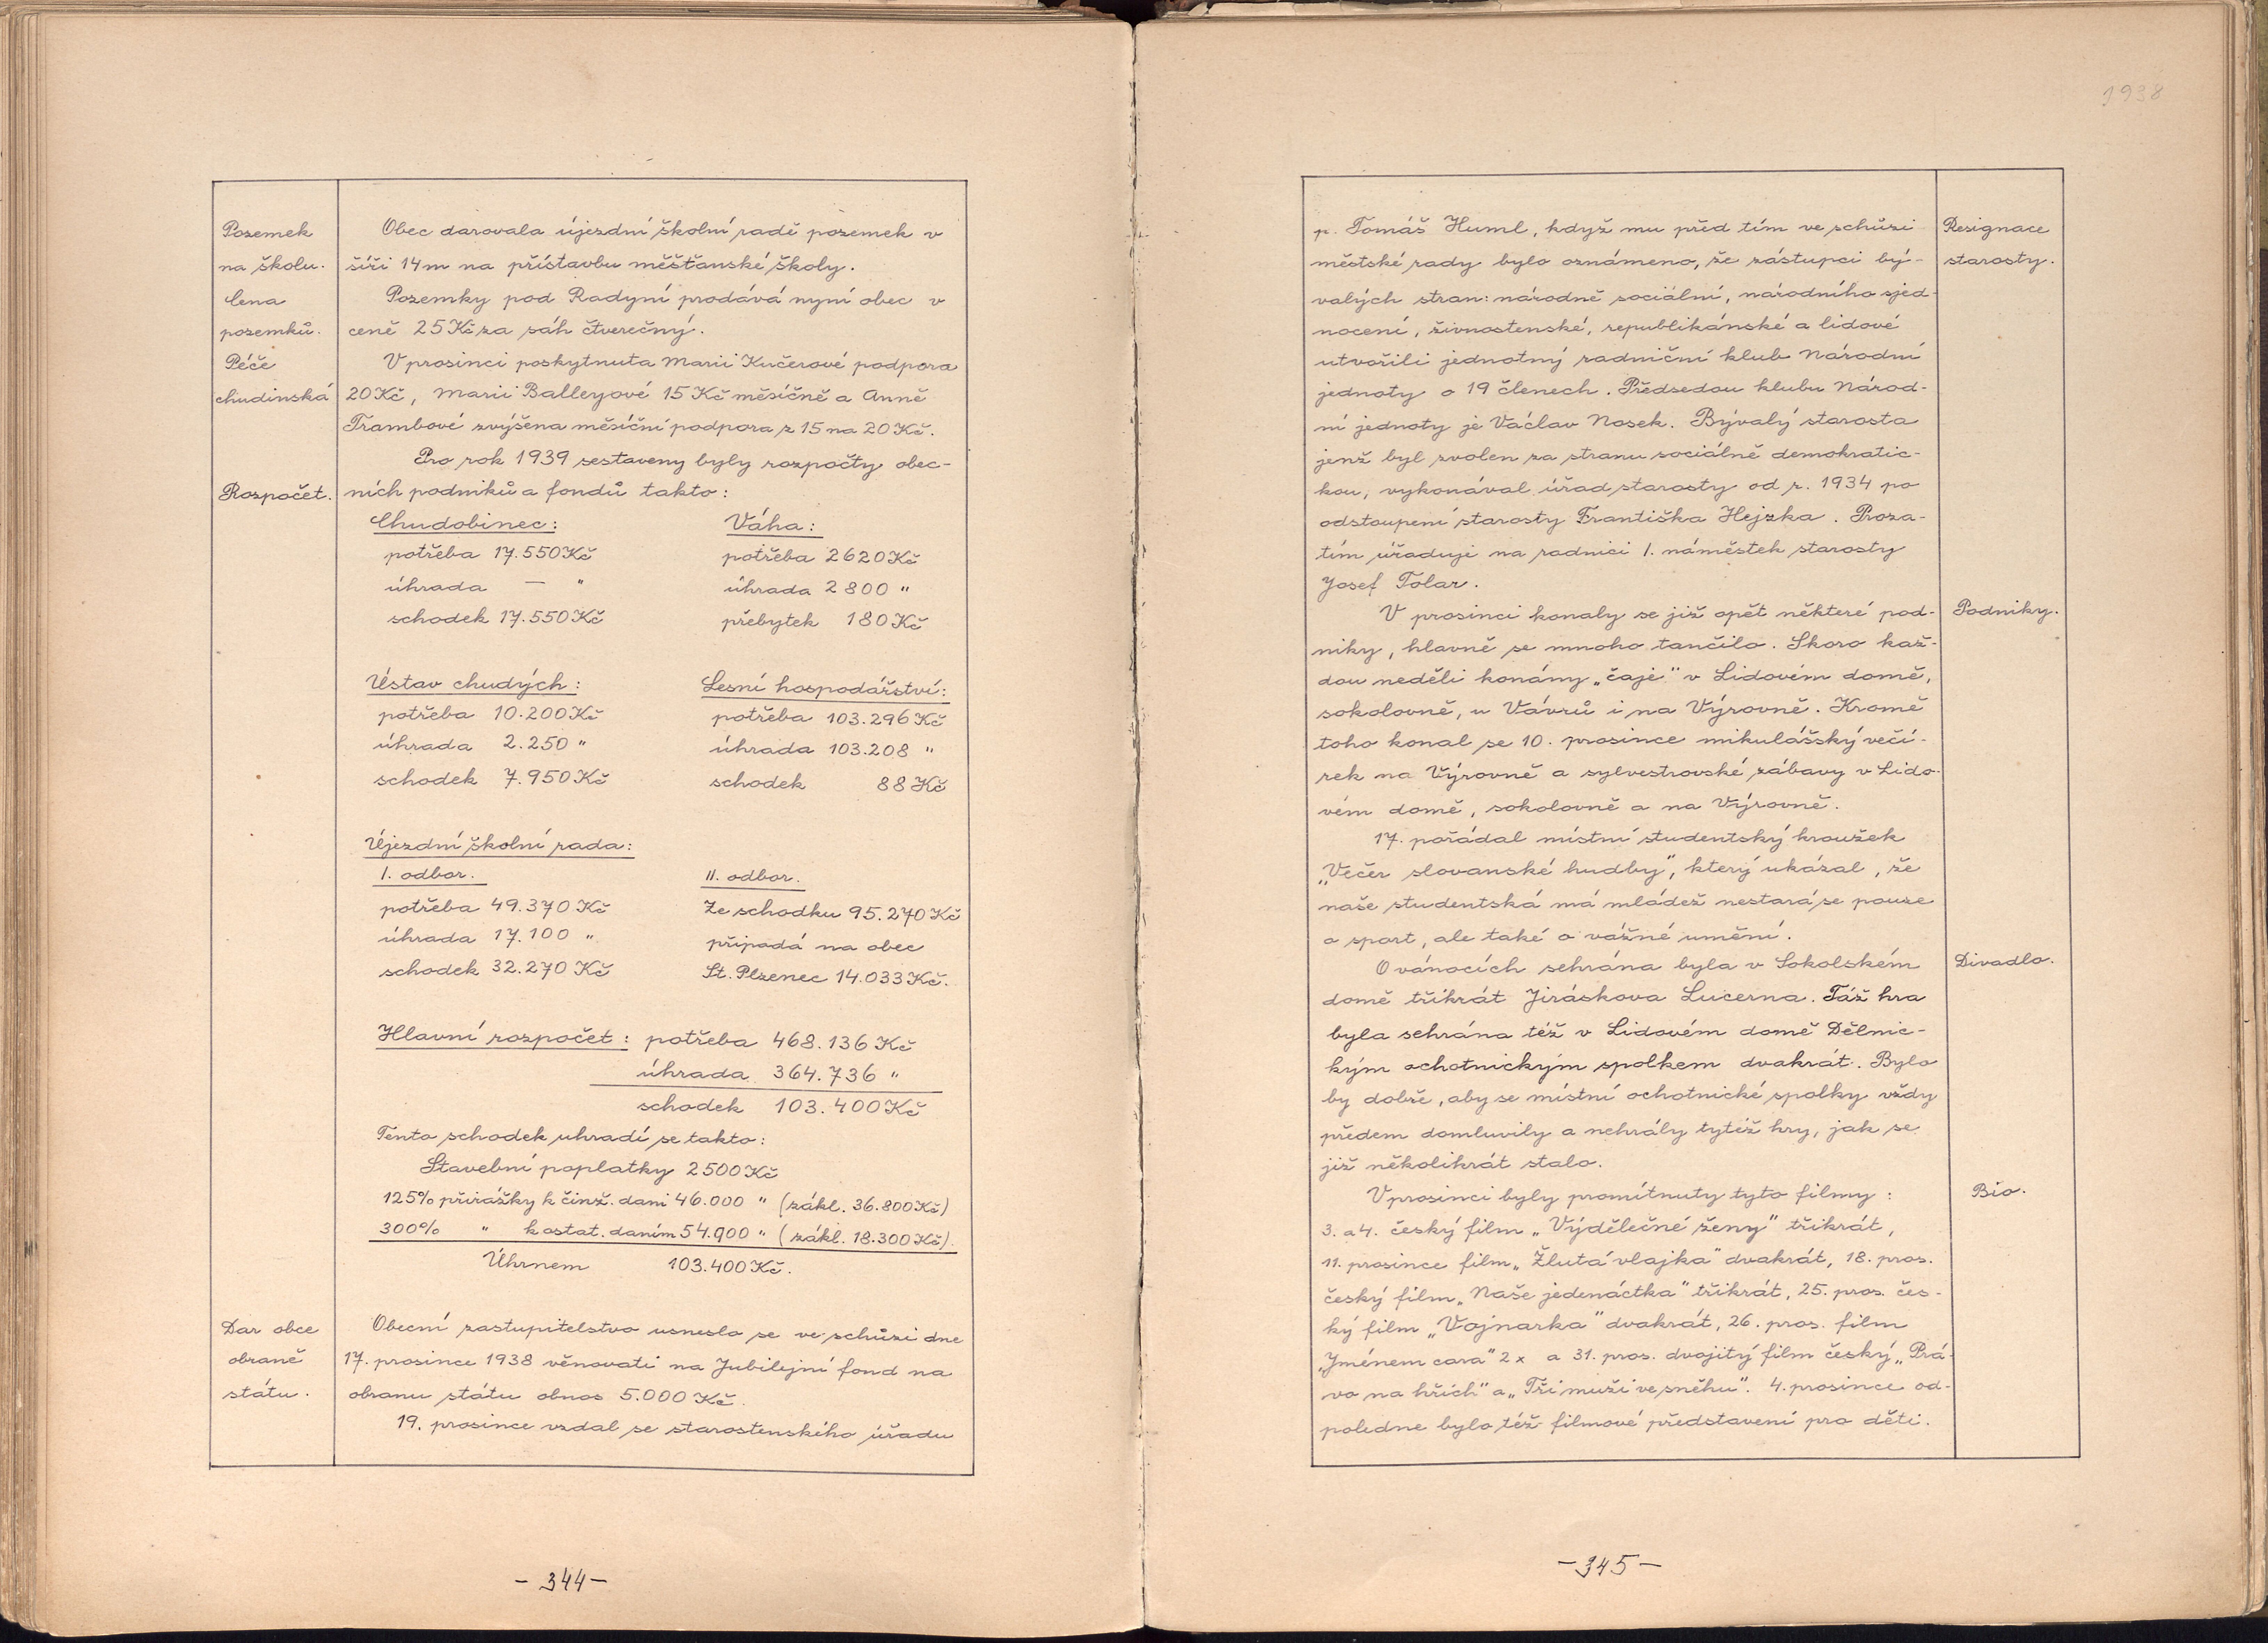 Pozemek
na školu.
Cena
pozemků.
Péče
chudinská
Rozpočet.
Dar obce
obraně
státu.
Obec darovala újezdní školní radě pozemek v
šíři 14m na přístavbu měšťanské školy.
Pozemky pod Radyní prodává nyní obec v
ceně 25 Kč za sáh čtverečný.
V prosinci poskytnuta Marii Kučerové podpora
20 Kč, Marii Balleyové 15 Kč měsíčně a Anně
Trambové zvýšena měsíční podpora z 15 na 20 Kč.
Pro rok 1939 sestaveny byly rozpočty obec-
ních podniků a fondů takto:
Chudobinec: Váha:
potřeba 17.550 Kč potřeba 2620 Kč
úhrada — " úhrada 2800 "
schodek 17.550 Kč přebytek 180 Kč
Ústav chudých: Lesní hospodářství:
potřeba 10.200 Kč potřeba 103.296 Kč
úhrada 2.250 " úhrada 103.208 "
schodek 7.950 Kč schodek 88 Kč
Újezdní školní rada:
I. odbor. II. odbor.
potřeba 49.370 Kč Ze schodku 95.270 Kč
úhrada 17.100 " připadá na obec
schodek 32.270 Kč St. Plzenec 14.033 Kč.
Hlavní rozpočet: potřeba 468.136 Kč
úhrada 364.736 "
schodek 103.400 Kč
Tento schodek uhradí se takto:
Stavební poplatky 2500 Kč
125% přirážky k činž. dani 46.000 " (zákl. 36.800 Kč)
300% " k ostat. daním 54.900 " (zákl. 18.300 Kč).
Úhrnem 103.400 Kč.
Obecní zastupitelstvo usneslo se ve schůzi dne
17. prosince 1938 věnovati na Jubilejní fond na
obranu státu obnos 5.000 Kč.
19. prosince vzdal se starostenského úřadu
- 344 -
1938
p. Tomáš Huml, když mu před tím ve schůzi
městské rady bylo oznámeno, že zástupci bý-
valých stran: národně sociální, národního sjed-
nocení, živnostenské, republikánské a lidové
utvořili jednotný radniční klub Národní
jednoty o 19 členech. Předsedou klubu Národ-
ní jednoty je Václav Nosek. Bývalý starosta
jenž byl zvolen za stranu sociálně demokratic-
kou, vykonával úřad starosty od r. 1934 po
odstoupení starosty Františka Hejzka. Proza-
tím úřaduje na radnici I. náměstek starosty
Josef Tolar.
V prosinci konaly se již opět některé pod-
niky, hlavně se mnoho tančilo. Skoro kaž-
dou neděli konány „čaje" v Lidovém domě,
sokolovně, u Vávrů i na Výrovně. Kromě
toho konal se 10. prosince mikulášský večí-
rek na Výrovně a sylvestrovské zábavy v Lido-
vém domě, sokolovně a na Výrovně.
17. pořádal místní studentský kroužek
„Večer slovanské hudby", který ukázal, že
naše studentská má mládež nestará se pouze
o sport, ale také o vážné umění.
O vánocích sehrána byla v Sokolském
domě třikrát Jiráskova Lucerna. Táž hra
byla sehrána též v Lidovém domě Dělnic-
kým ochotnickým spolkem dvakrát. Bylo
by dobře, aby se místní ochotnické spolky vždy
předem domluvily a nehrály tytéž hry, jak se
již několikrát stalo.
V prosinci byly promítnuty tyto filmy:
3. a 4. český film „Výdělečné ženy" třikrát,
11. prosince film „Žlutá vlajka" dvakrát, 18. pros.
český film „Naše jedenáctka" třikrát, 25. pros. čes-
ký film „Vojnarka" dvakrát, 26. pros. film
„Jménem cara" 2x a 31. pros. dvojitý film český „Prá-
vo na hřích" a „Tři muži ve sněhu". 4. prosince od-
poledne bylo též filmové představení pro děti.
Resignace
starosty.
Podniky.
Divadlo.
Bio.
- 345 -